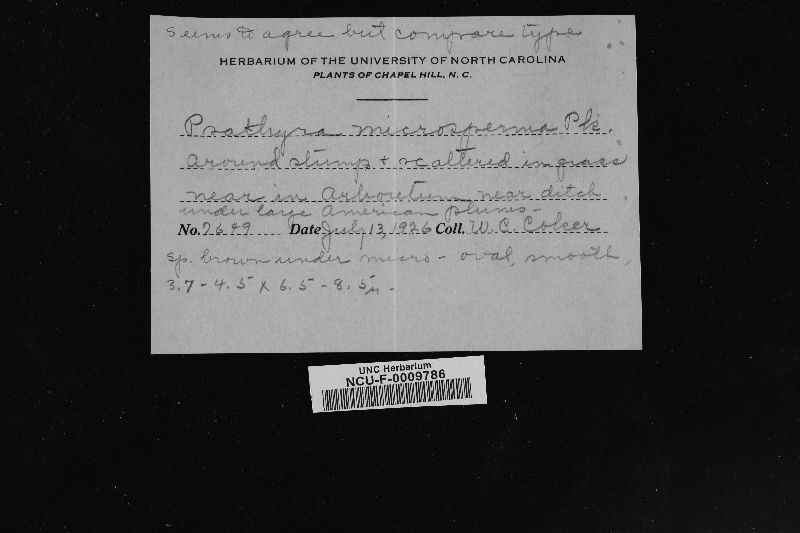 Seems to agree but compare type
HERBARIUM OF THE UNIVERSITY OF NORTH CAROLINA
PLANTS OF CHAPEL HILL, N. C.
Psathyra microsperma Pk.
around stump + scattered in grass
near in Arboretum near ditch
under large American plums -
No. 7649 Date July 13, 1926 Coll. W. C. Coker
Sp. brown under micro - oval, smooth,
3.7 - 4.5 x 6.5 - 8.5µ -
UNC Herbarium
NCU-F-0009786